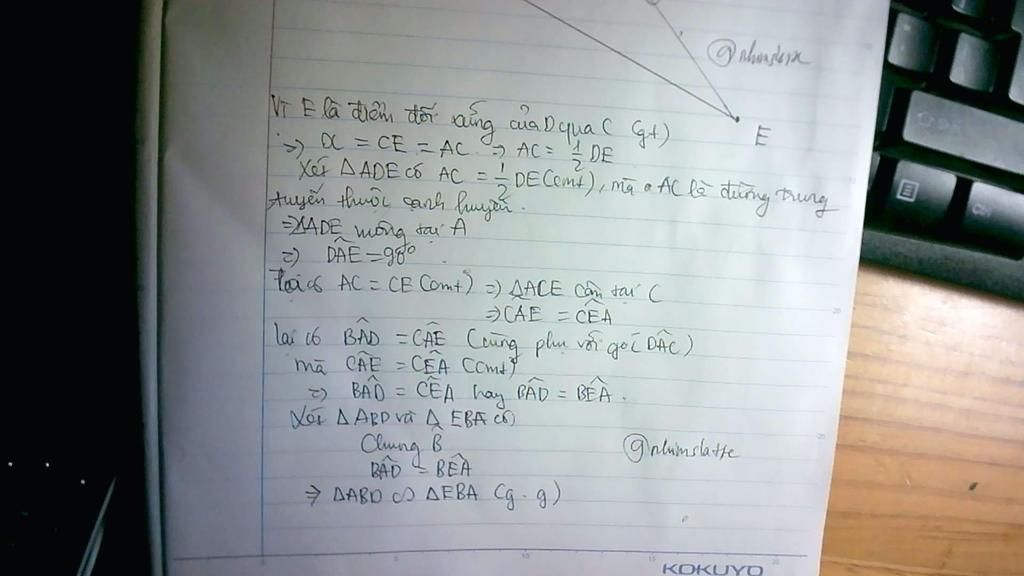 @nhumslatte
E
Vì E là điểm đối xứng của D qua C (gt)
=> DC = CE = AC => AC = 1/2 DE
Xét ΔADE có AC = 1/2 DE (cmt), mà AC là đường trung
tuyến thuộc cạnh huyền.
=> ΔADE vuông tại A
=> DÂE = 90°
Ta có AC = CE (cmt) => ΔACE cân tại C
=> CÂE = CÊA
lại có BÂD = CÂE (cùng phụ với góc DÂC)
mà CÂE = CÊA (cmt)
=> BÂD = CÊA hay BÂD = BÊA.
Xét ΔABD và ΔEBA có
Chung B̂
BÂD = BÊA
@nhumslatte
=> ΔABD ∽ ΔEBA (g.g)
KOKUYO